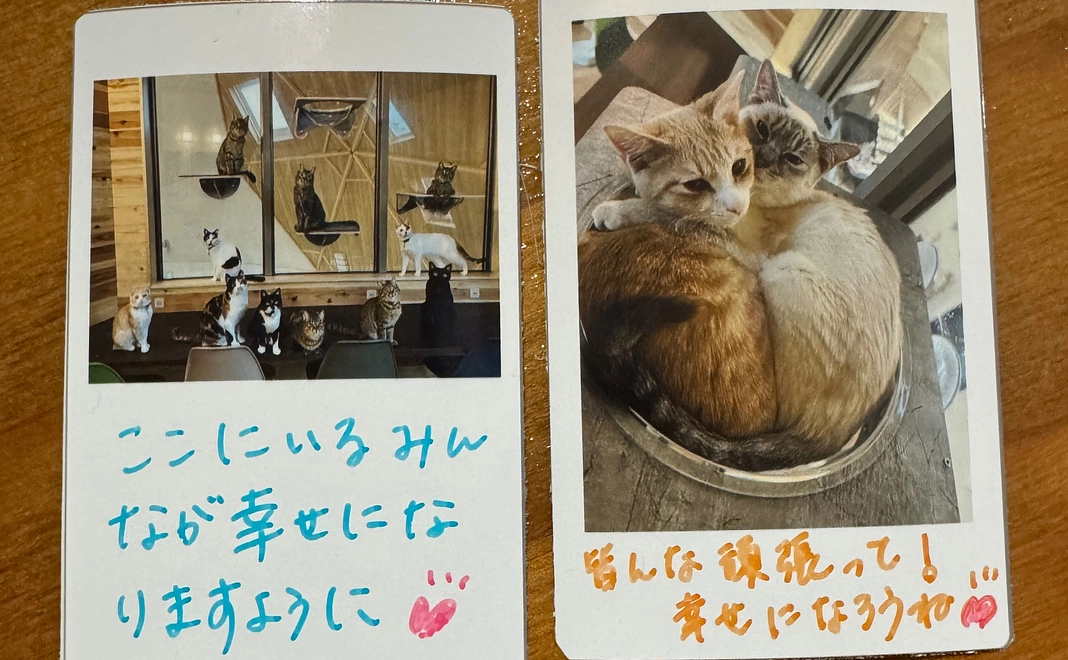 ここにいるみん
なが幸せにな
りますように
皆んな頑張って！
幸せになろうね